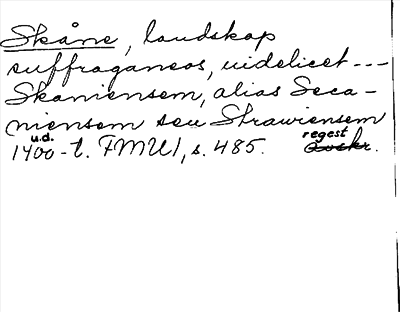 Skåne, landskap
suffraganeos, videlicet ---
Skaniensem, alias Seca-
niensem seu Strawiensem
u.d. regest
1400-t. FMU 1, s. 485. Avskr.